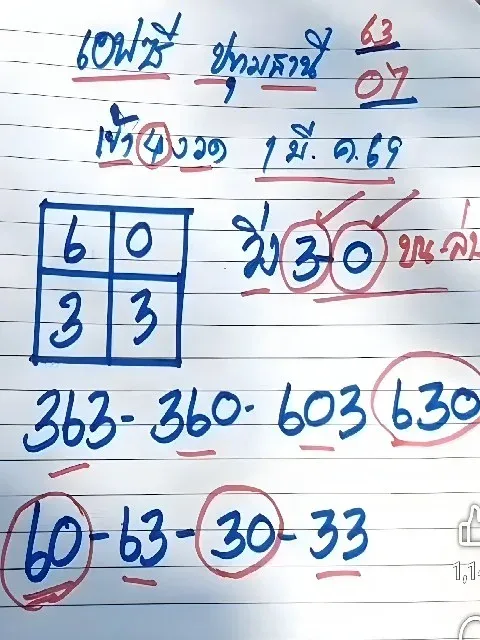 เอฟซี ปทุมธานี 63
07
เข้า 4 งวด 1 มี.ค.69
6 0
3 3
วิ่ง 3-0 บน-ล่าง
363- 360- 603 630
60-63-30-33